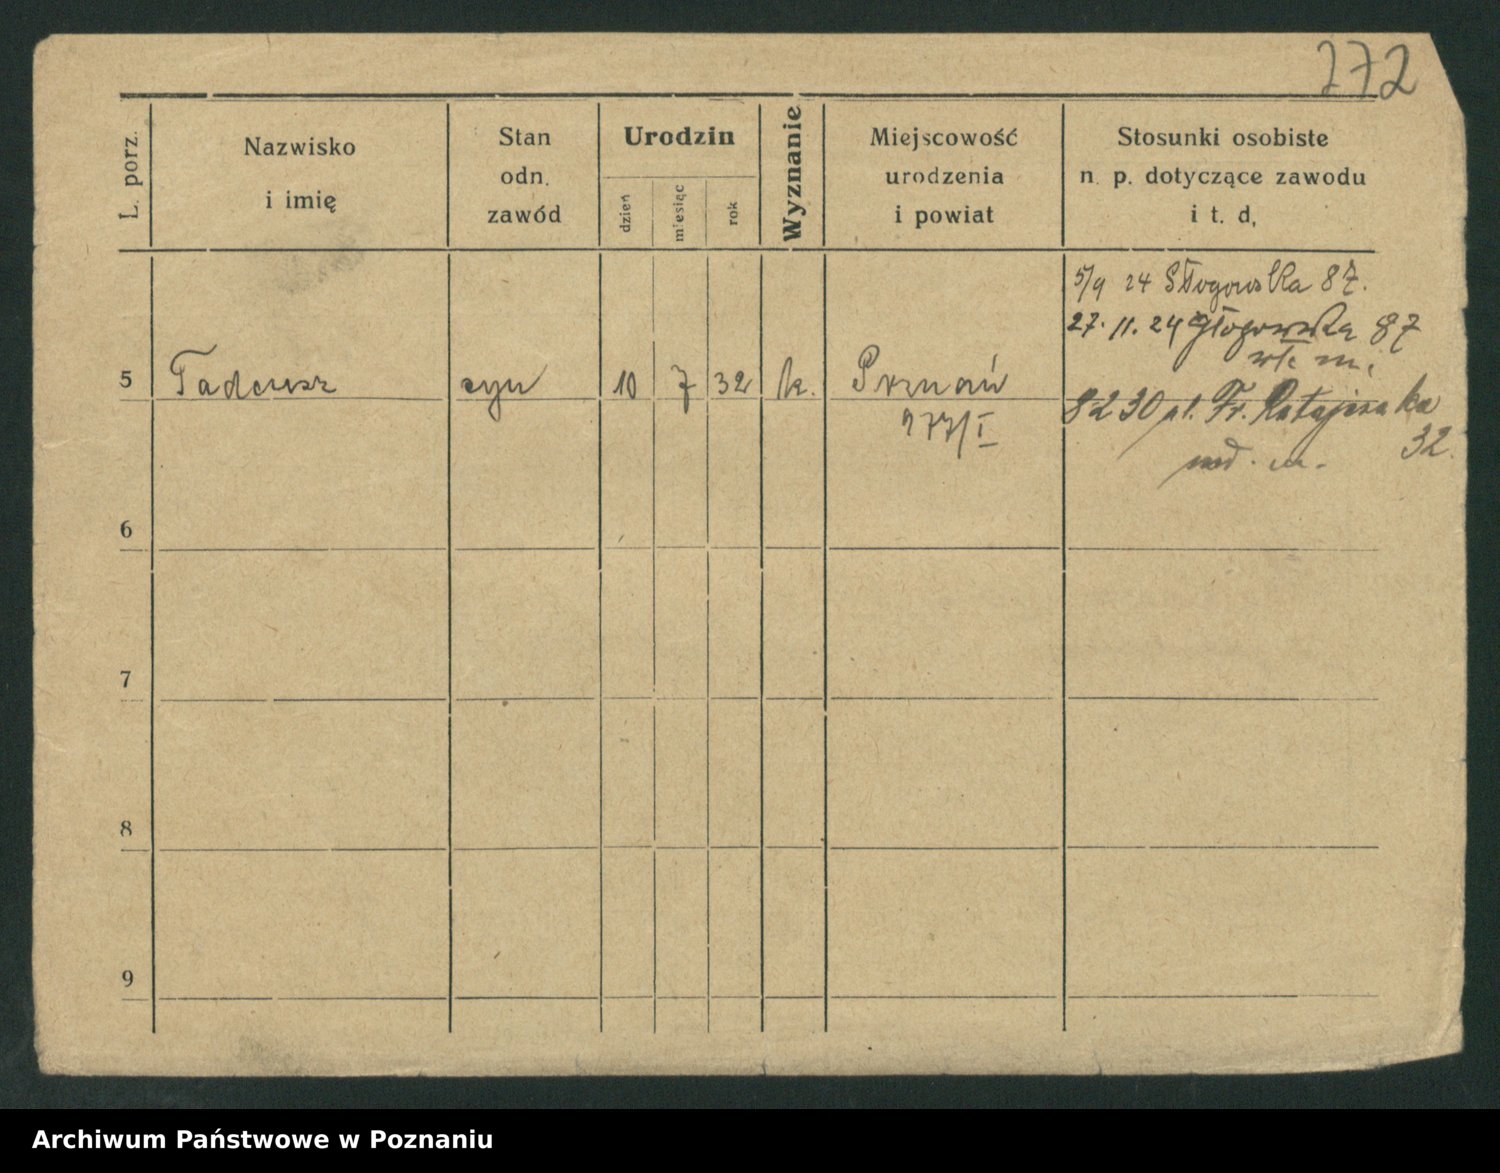 272
L. porz.
Nazwisko
i imię
Stan
odn.
zawód
Urodzin
dzień
miesiąc
rok
Wyznanie
Miejscowość
urodzenia
i powiat
Stosunki osobiste
n. p. dotyczące zawodu
i t. d,
5/9 24 Głogowska 87.
27. 11. 24 Głogowska 87
5 Tadeusz syn 10 7 32 k. Poznań
8 2 30 pl. Fr. Ratajczaka
277/I
32.
6
7
8
9
Archiwum Państwowe w Poznaniu